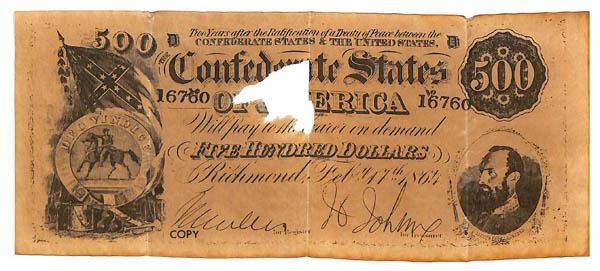 Two Years after the Ratification of a Treaty of Peace between the
CONFEDERATE STATES & THE UNITED STATES,
500 D D 500
THE Confederate States
16760 OF AMERICA No 16760
Will pay to the bearer on demand
FIVE HUNDRED DOLLARS
Richmond, Feb. 17th 1864
DEO VINDICE
for Register for Treasurer
COPY